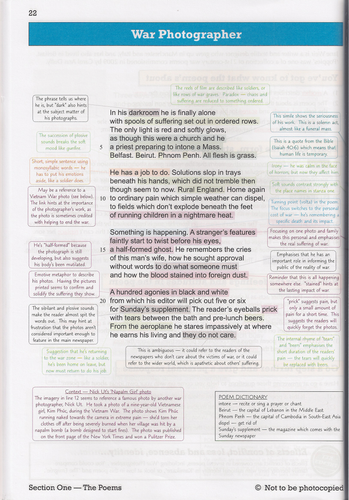 22
War Photographer
The rolls of film are described like soldiers, or
like rows of war graves. Paradox — chaos and
suffering are reduced to something ordered.
The phrase tells us where
he is, but "dark" also hints
at the subject matter of
his photographs.
The succession of plosive
sounds breaks the soft
mood like gunfire.
Short, simple sentence using
monosyllabic words — he
has to put his emotions
aside, like a soldier does.
May be a reference to a
Vietnam War photo (see below).
The link hints at the importance
of the photographer's work, as
the photo is sometimes credited
with helping to end the war.
He's "half-formed" because
the photograph is still
developing, but also suggests
his body's been mutilated.
Emotive metaphor to describe
his photos. Having the pictures
printed seems to confirm and
solidify the suffering they show.
The sibilant and plosive sounds
make the reader almost spit the
words out. This may hint at
frustration that the photos aren't
considered important enough to
feature in the main newspaper.
Suggestion that he's returning
to the war zone — like a soldier,
he's been home on leave, but
now must return to do his job.
In his darkroom he is finally alone
with spools of suffering set out in ordered rows.
The only light is red and softly glows,
as though this were a church and he
5 a priest preparing to intone a Mass.
Belfast. Beirut. Phnom Penh. All flesh is grass.
He has a job to do. Solutions slop in trays
beneath his hands, which did not tremble then
though seem to now. Rural England. Home again
10 to ordinary pain which simple weather can dispel,
to fields which don't explode beneath the feet
of running children in a nightmare heat.
Something is happening. A stranger's features
faintly start to twist before his eyes,
15 a half-formed ghost. He remembers the cries
of this man's wife, how he sought approval
without words to do what someone must
and how the blood stained into foreign dust.
A hundred agonies in black and white
20 from which his editor will pick out five or six
for Sunday's supplement. The reader's eyeballs prick
with tears between the bath and pre-lunch beers.
From the aeroplane he stares impassively at where
he earns his living and they do not care.
This simile shows the seriousness
of his work. This is a solemn act,
almost like a funeral mass.
This is a quote from the Bible
(Isaiah 40:6) which means that
human life is temporary.
Soft sounds contrast strongly with
Focusing on one family and
makes this personal and emphasises
the real suffering of war.
Emphasises that he has an
important role in informing the
public of the reality of war.
Reminder that this is all happening
somewhere else. "stained" hints at
the lasting impact of war.
"prick" suggests pain, but
only a small amount of
pain for a short time. This
suggests the readers will
quickly forget the photos.
The internal rhyme of "tears"
and "beers" emphasises the
short duration of the readers'
pain — the tears will quickly
be replaced with beers.
This is ambiguous — it could refer to the readers of the
newspapers who don't care about the victims of war, or it could
refer to the wider world, which is apathetic about others' suffering.
Context — Nick Ut's 'Napalm Girl' photo
The imagery in line 12 seems to reference a famous photo by another war
photographer, Nick Ut. He took a photo of a nine-year-old Vietnamese
girl, Kim Phúc, during the Vietnam War. The photo shows Kim Phúc
running naked towards the camera in extreme pain — she'd torn her
clothes off after being severely burned when her village was hit by a
napalm bomb (a bomb designed to start fires). The photo was published
on the front page of the New York Times and won a Pulitzer Prize.
POEM DICTIONARY
intone — recite or sing a prayer or chant
Beirut — the capital of Lebanon in the Middle East
Phnom Penh — the capital of Cambodia in South-East Asia
dispel — get rid of
Sunday's supplement — the magazine which comes with the
Sunday newspaper
Section One — The Poems
© Not to be photocopied